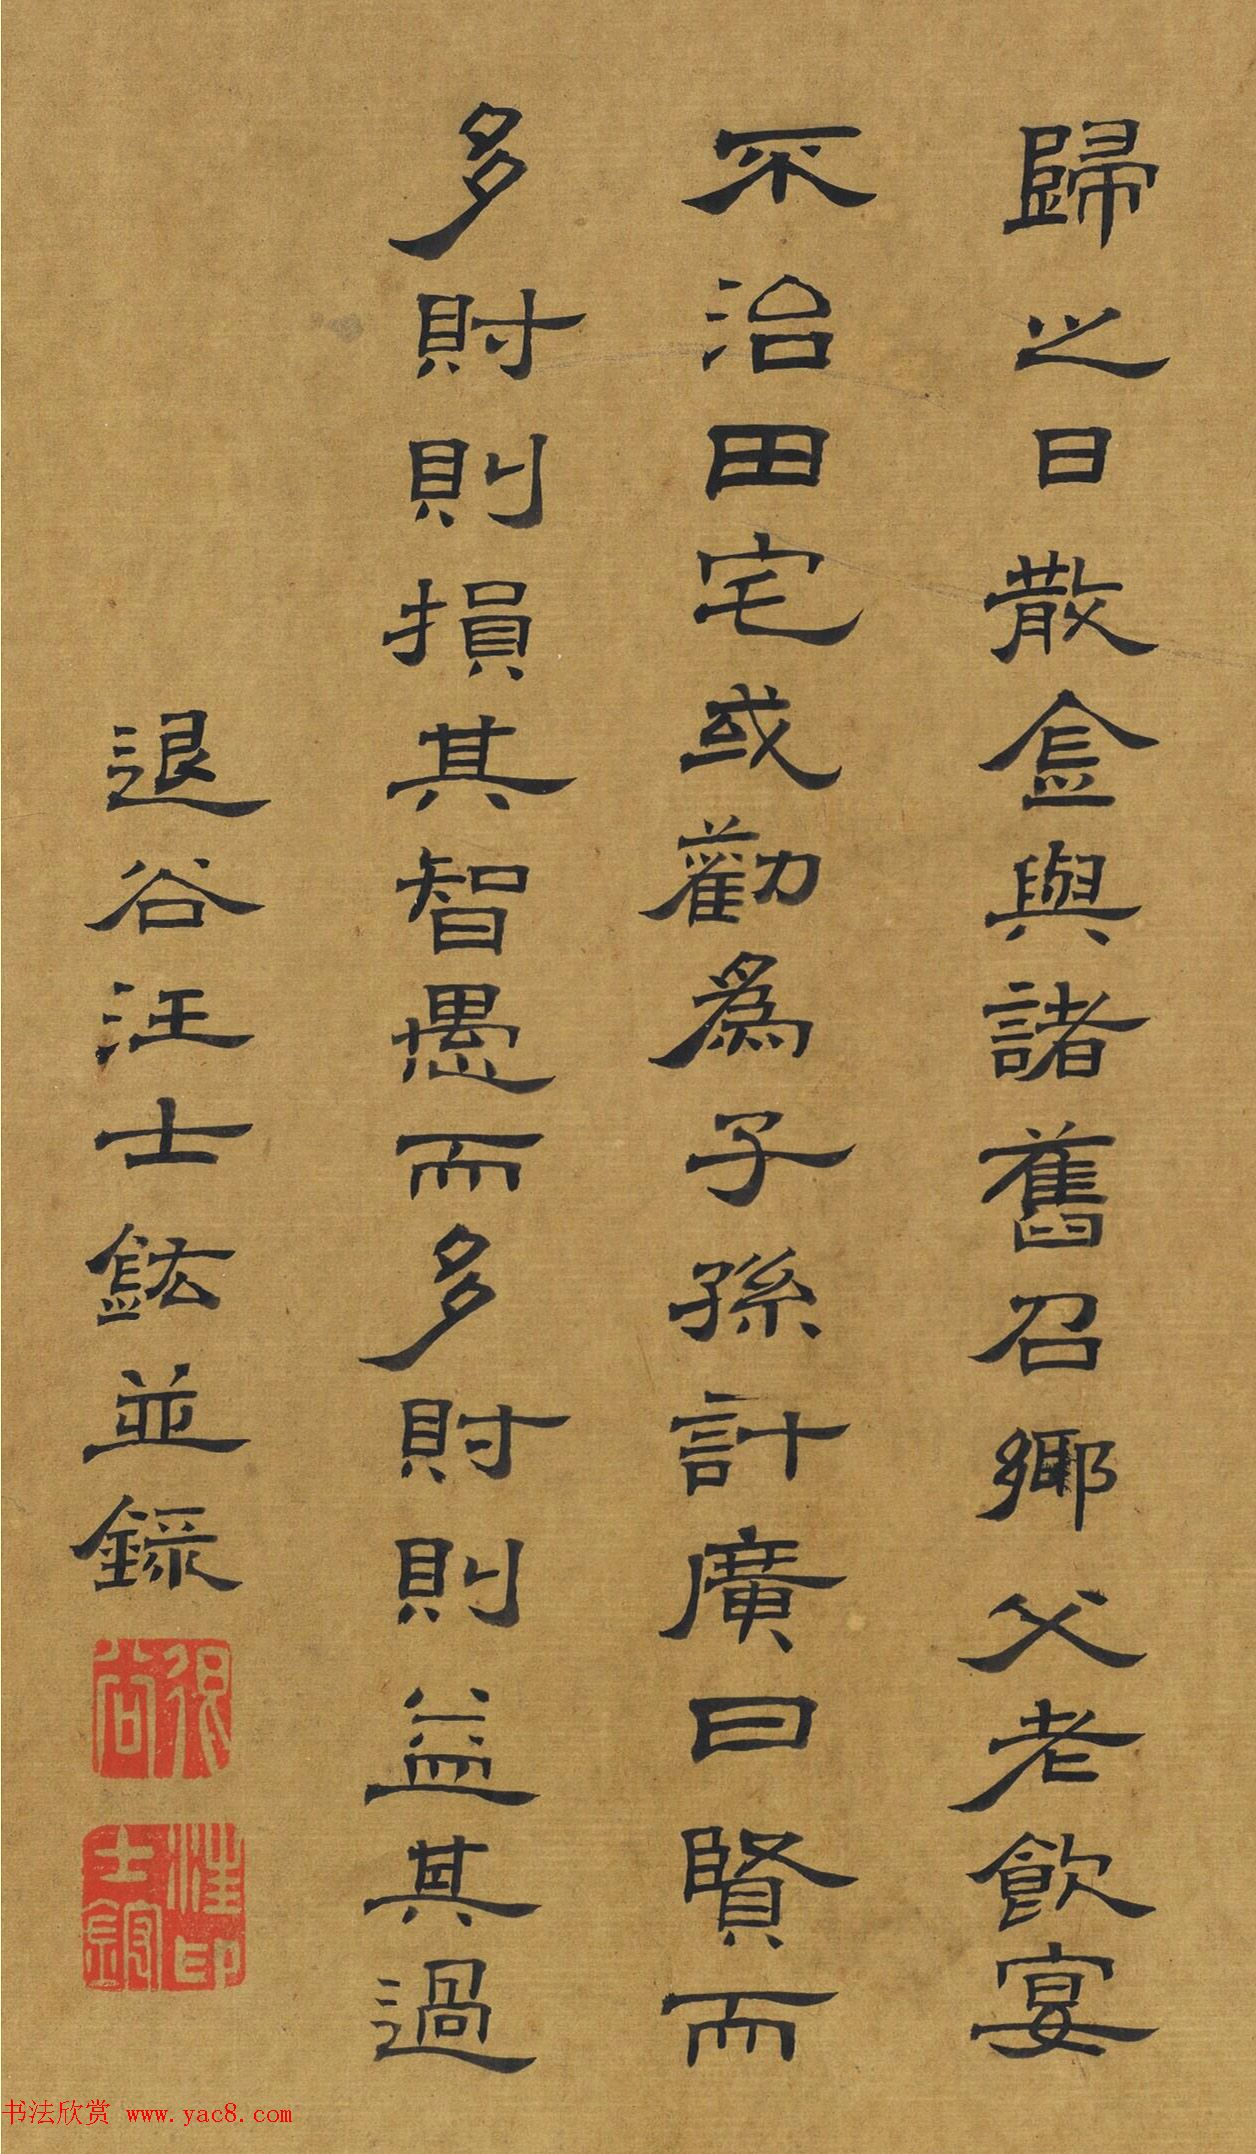 歸之日散金與諸舊召鄉父老飲宴
不治田宅或勸為子孫計廣曰賢而
多財則損其智愚而多財則益其過
退谷汪士鋐並錄
汪士鋐印
书法欣赏 www.yac8.com